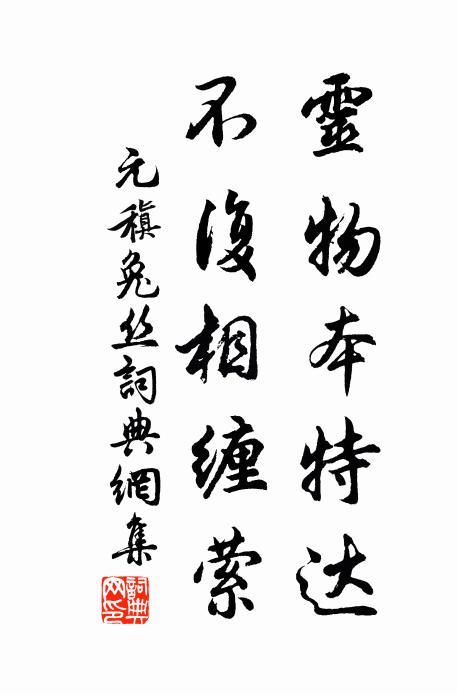 靈物本特达
不復相纏縈
元稹兔丝詞典網集
詞典网印